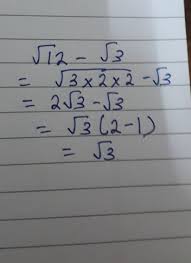 √12 - √3
= √3×2×2 - √3
= 2√3 - √3
= √3 (2-1)
= √3